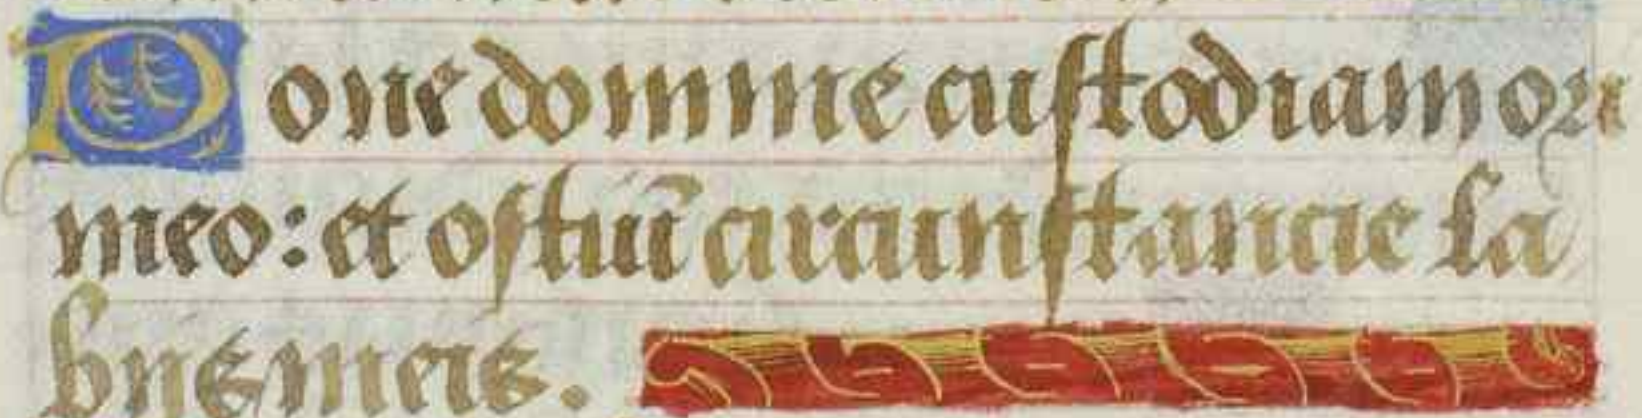 Pone domine custodiam ori
meo: et ostiũ circunstancie la
bus meis.